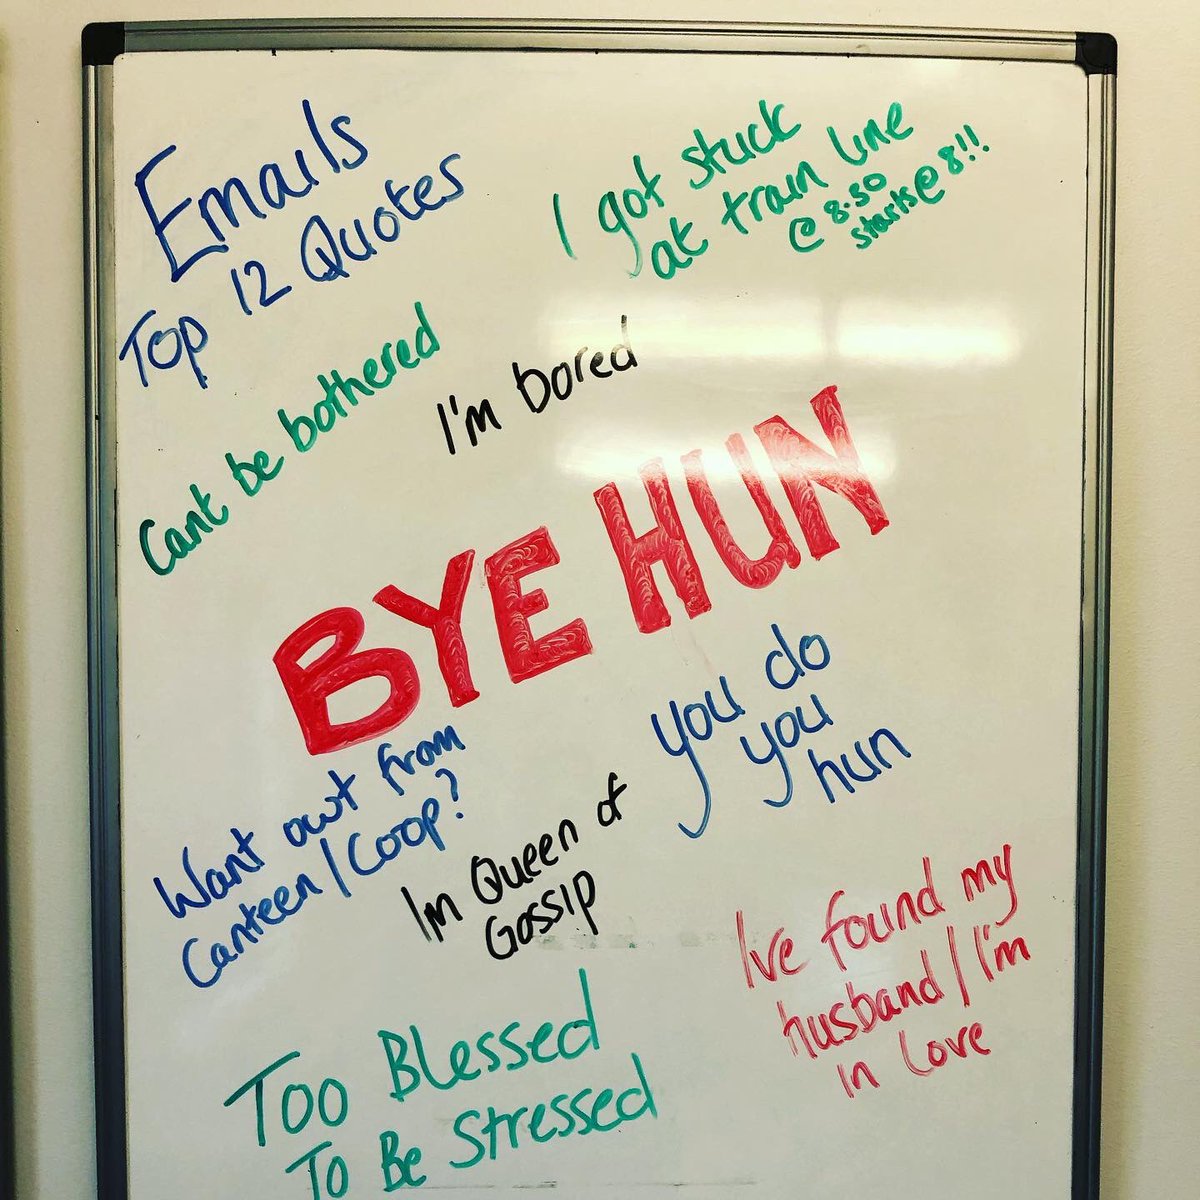 Emails
Top 12 Quotes
I got stuck
at train line
@ 8.30
starts@8!!
Cant be bothered
I'm bored
BYE HUN
you do
you
hun
Want owt from
Canteen/Coop?
Im Queen of
Gossip
Ive found my
husband/I'm
in love
Too Blessed
To Be Stressed